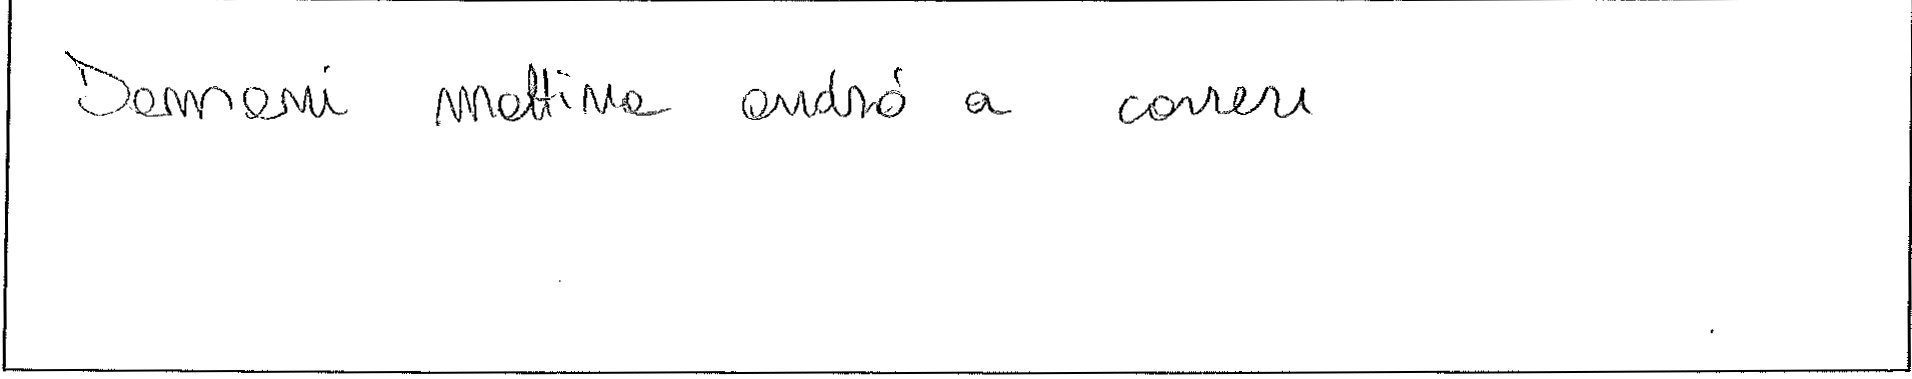 Domani mattina andró a correre